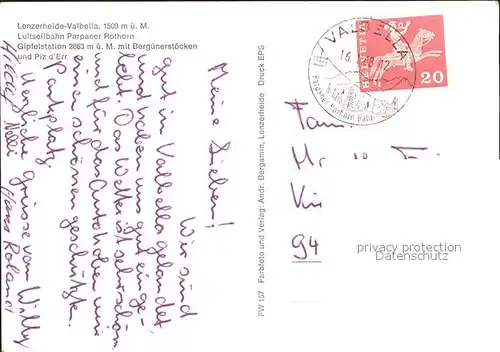 Lenzerheide-Valbella, 1500 m ü. M.
Luftseilbahn Parpaner Rothorn
Gipfelstation 2863 m ü. M. mit Bergünerstöcken
und Piz d'Err
Meine Lieben!
Wir sind
gut in Valbella gelandet
und haben uns gut einge-
lebt. Das Wetter ist sehr schön
und für das Auto haben wir
einen schönen geschützte
Parkplatz.
Herzliche Grüsse von Willy
Nelli Hans Roland
FW 157 Farbfoto und Verlag: Andr. Bergamin, Lenzerheide Druck EPS
VALBELLA
Parpaner Rothorn Bahn
HELVETIA
20
Fam.
94
privacy protection
Datenschutz